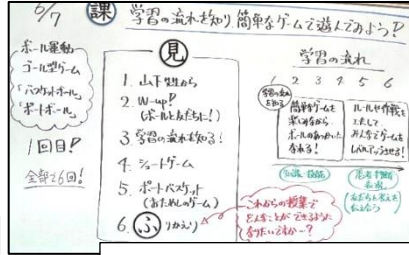 6/7
課 学習の流れを知り、簡単なゲームで遊んでみよう!
ボール運動
ゴール型ゲーム
「バスケットボール」
「ポートボール」
1回目!
全部で6回!
見
1. 山下先生から
2. W-up!
(ボールと友だちに!)
3. 学習の流れを知る!
4. シュートゲーム
5. ポートバスケット
(おためしのゲーム)
6. ふりかえり
学習の流れ
1 2 3 4 5 6
学習の流れを知る
簡単なゲームを
楽しみながら
ボールのあつかいに
なれる!
ルールや作戦を
工夫して
みんなでゲームを
レベルアップさせる!
知識・技能
思考・判断
表現
(友だちに考えを
伝えよう)
これからの授業で
どんなことができるように
なりたいですか〜?